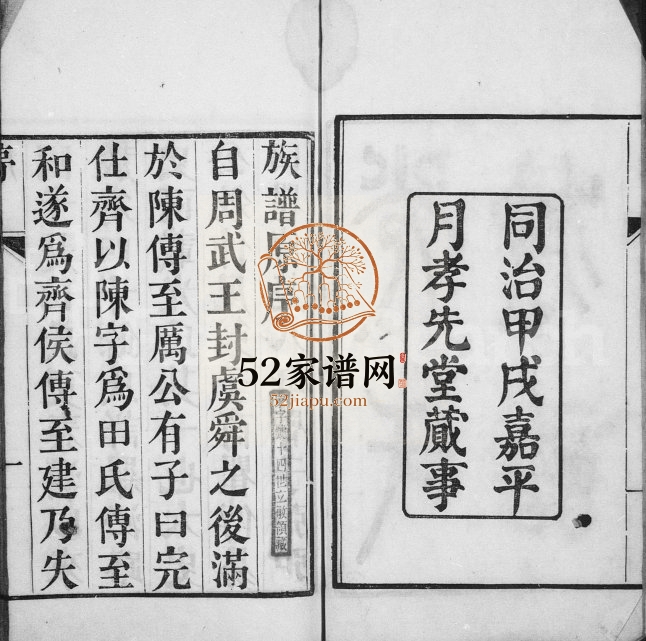 同治甲戌嘉平
月孝先堂蕆事
族譜原序
自周武王封虞舜之後滿
於陳傳至厲公有子曰完
仕齊以陳字爲田氏傳至
和遂爲齊侯傳至建乃失
52家谱网
52jiapu.com